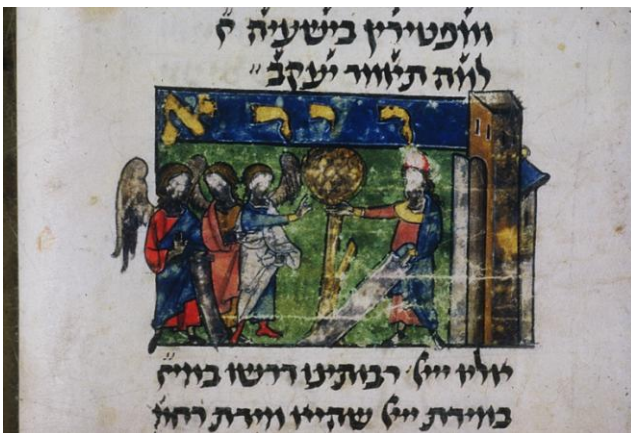 ומפטירין בישעיה
למה תאמר יעקב
וירא
אליו ייי רבותינו דרשו
במידת ייי שהיא מידת